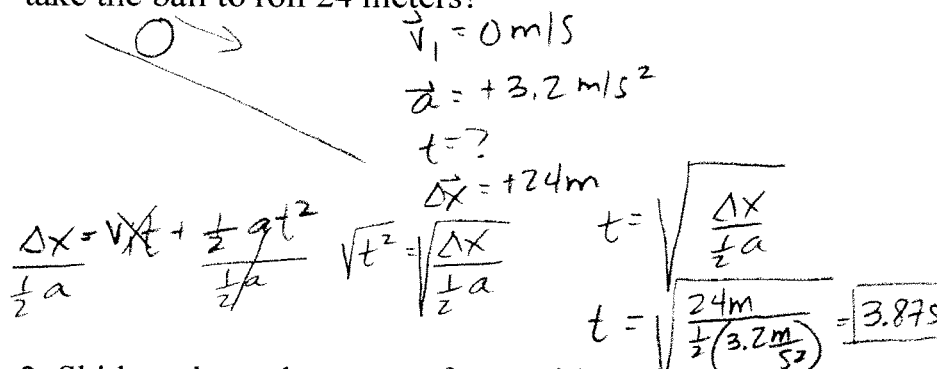 take the ball to roll 24 meters?
v⃗₁ = 0 m/s
a⃗ = +3.2 m/s²
t = ?
Δx⃗ = +24m
Δx = v₁t + ½ at²
½ a ½ a
√t² = √(Δx / ½ a)
t = √(Δx / ½ a)
t = √(24m / ½(3.2 m/s²)) = 3.87s